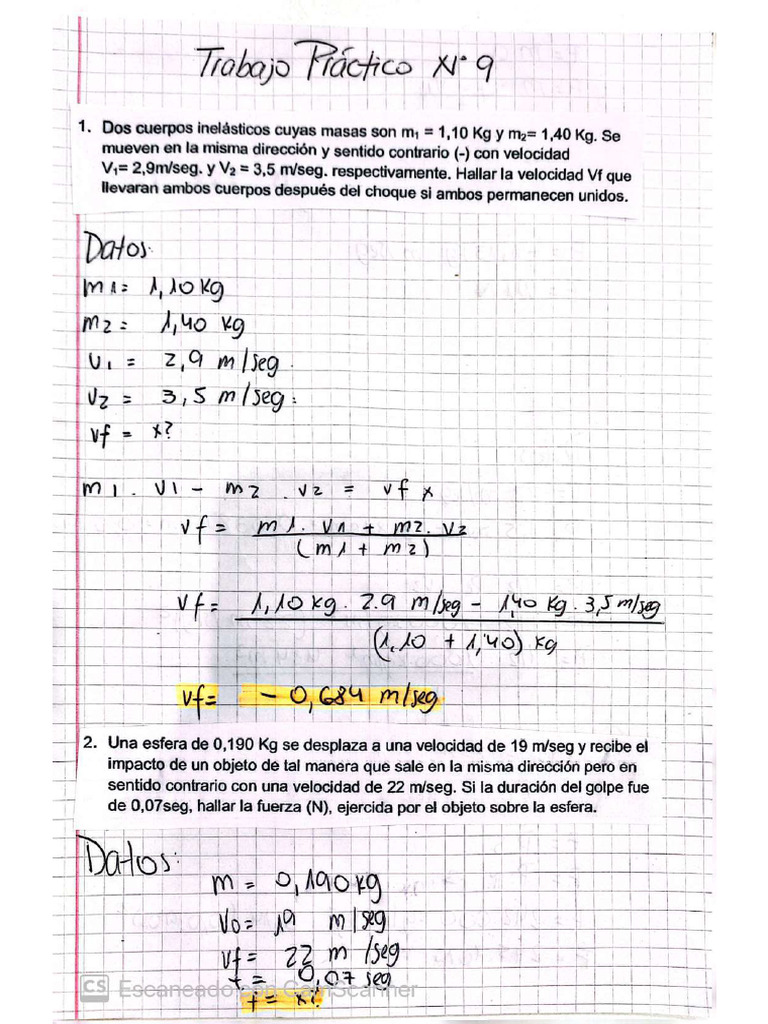 Trabajo Práctico N° 9
1. Dos cuerpos inelásticos cuyas masas son m₁ = 1,10 Kg y m₂= 1,40 Kg. Se
mueven en la misma dirección y sentido contrario (-) con velocidad
V₁= 2,9m/seg. y V₂ = 3,5 m/seg. respectivamente. Hallar la velocidad Vf que
llevaran ambos cuerpos después del choque si ambos permanecen unidos.
Datos:
m1= 1,10 kg
m2= 1,40 kg
V1 = 2,9 m/seg.
V2 = 3,5 m/seg.
vf = x?
m1. V1 - m2 . v2 = vf x
vf = m1. v1 + m2. v2
(m1 + m2)
vf= 1,10 kg. 2.9 m/seg - 1,40 kg. 3,5 m/seg
(1,10 + 1,40) kg
vf= - 0,684 m/seg
2. Una esfera de 0,190 Kg se desplaza a una velocidad de 19 m/seg y recibe el
impacto de un objeto de tal manera que sale en la misma dirección pero en
sentido contrario con una velocidad de 22 m/seg. Si la duración del golpe fue
de 0,07seg, hallar la fuerza (N), ejercida por el objeto sobre la esfera.
Datos:
m = 0,190 kg
V0= 19 m/seg
vf= 22 m/seg
t= 0,07 seg
CS Escaneado con CamScanner
f= x?